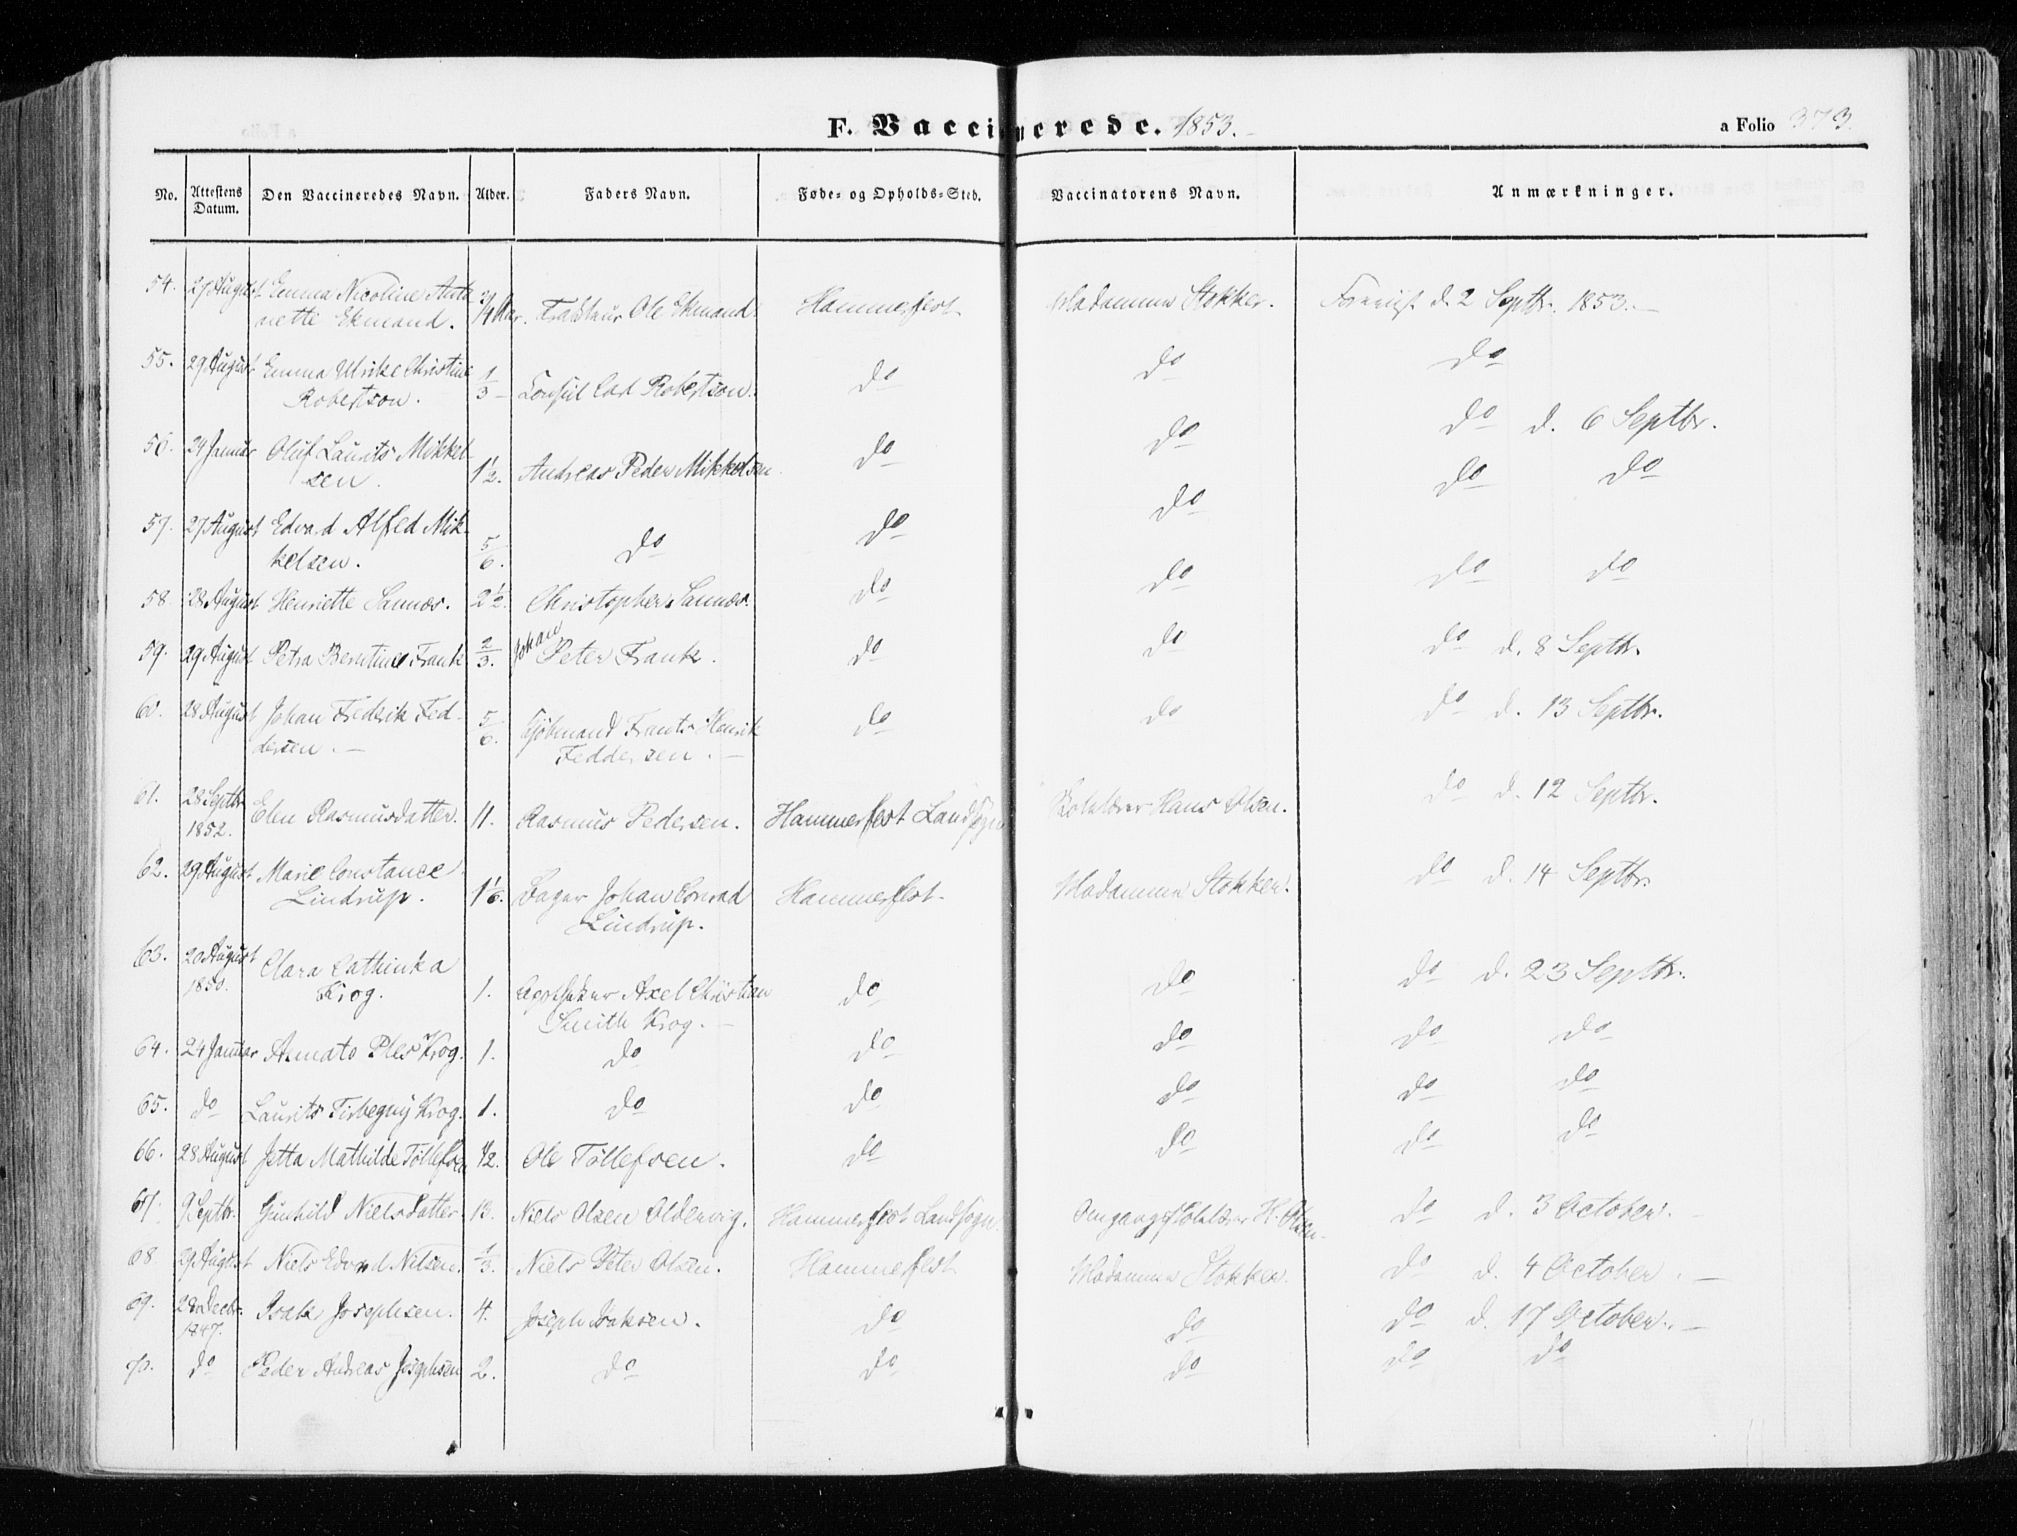 F. Vaccinerede. 1853.
a Folio 373.
No. Attestens Datum. Den Vaccineredes Navn. Alder. Faders Navn. Føde- og Opholds-Sted. Vaccinatorens Navn. Anmærkninger.
54. 27 August Emma Nicoline Anto Hammerfest Madamme Stokker. Foreviist d. 2 Septbr. 1853.
nette Ekmand. 3/4 Aar. Ole Ekmand.
55. 29 August Emma Ulrike Christine 1/3 Consul Carl Robertson. do do do
Robertson.
56. 24 Januar Oluf Laurits Mikkel 1 1/2. Andreas Peder Mikkelsen do do do d. 6 Septbr.
sen.
57. 27 August Edvard Alfred Mik 5/6. do do do do do
kelsen.
58. 28 August Henriette Sannes. 2 1/2. Christopher Sannes. do do do do
59. 29 August Petra Berntine Frank 2/3. Johan Peter Frank. do do do d. 8 Septbr.
60. 28 August Johan Fredrik Fed- 5/6. Kjöbmand Frants Henrik do do do d. 13 Septbr.
dersen. Feddersen.
61. 28 Septbr 1852. Elen Rasmusdatter. 11. Rasmus Pedersen. Hammerfest Landsogn Skolelærer Hans Olsen. do d. 12 Septbr.
62. 29 August Marie Constance 1 1/6. Bager Johan Conrad Hammerfest. Madamme Stokker. do d. 14 Septbr.
Lindrup. Lindrup.
63. 20 August 1850. Clara Cathinka 1. Apotheker Axel Christian do do do d. 23 Septbr.
Krog. Smith Krog.
64. 24 Januar Krog. 1. do do do do do
65. do Laurits Krog. 1. do do do do do
66. 28 August Jetta Mathilde Tollefsen 1/2. Ole Tollefsen. do do do do
67. 9 Septbr. Gunhild Nielsdatter 13. Niels Olsen Oldervig. Hammerfest Landsogn. Omgangsskolelærer H. Olsen. do d. 3 October.
68. 29 August Niels Edvard Nilsen. 1/3. Niels Peter Olsen. Hammerfest Madamme Stokker. do d. 4 October.
69. 28 Decbr. 1847. Isak Josephsen. 4. Joseph Isaksen. do do do d. 17 October.
70. do Peder Andreas Josephsen 2. do do do do do